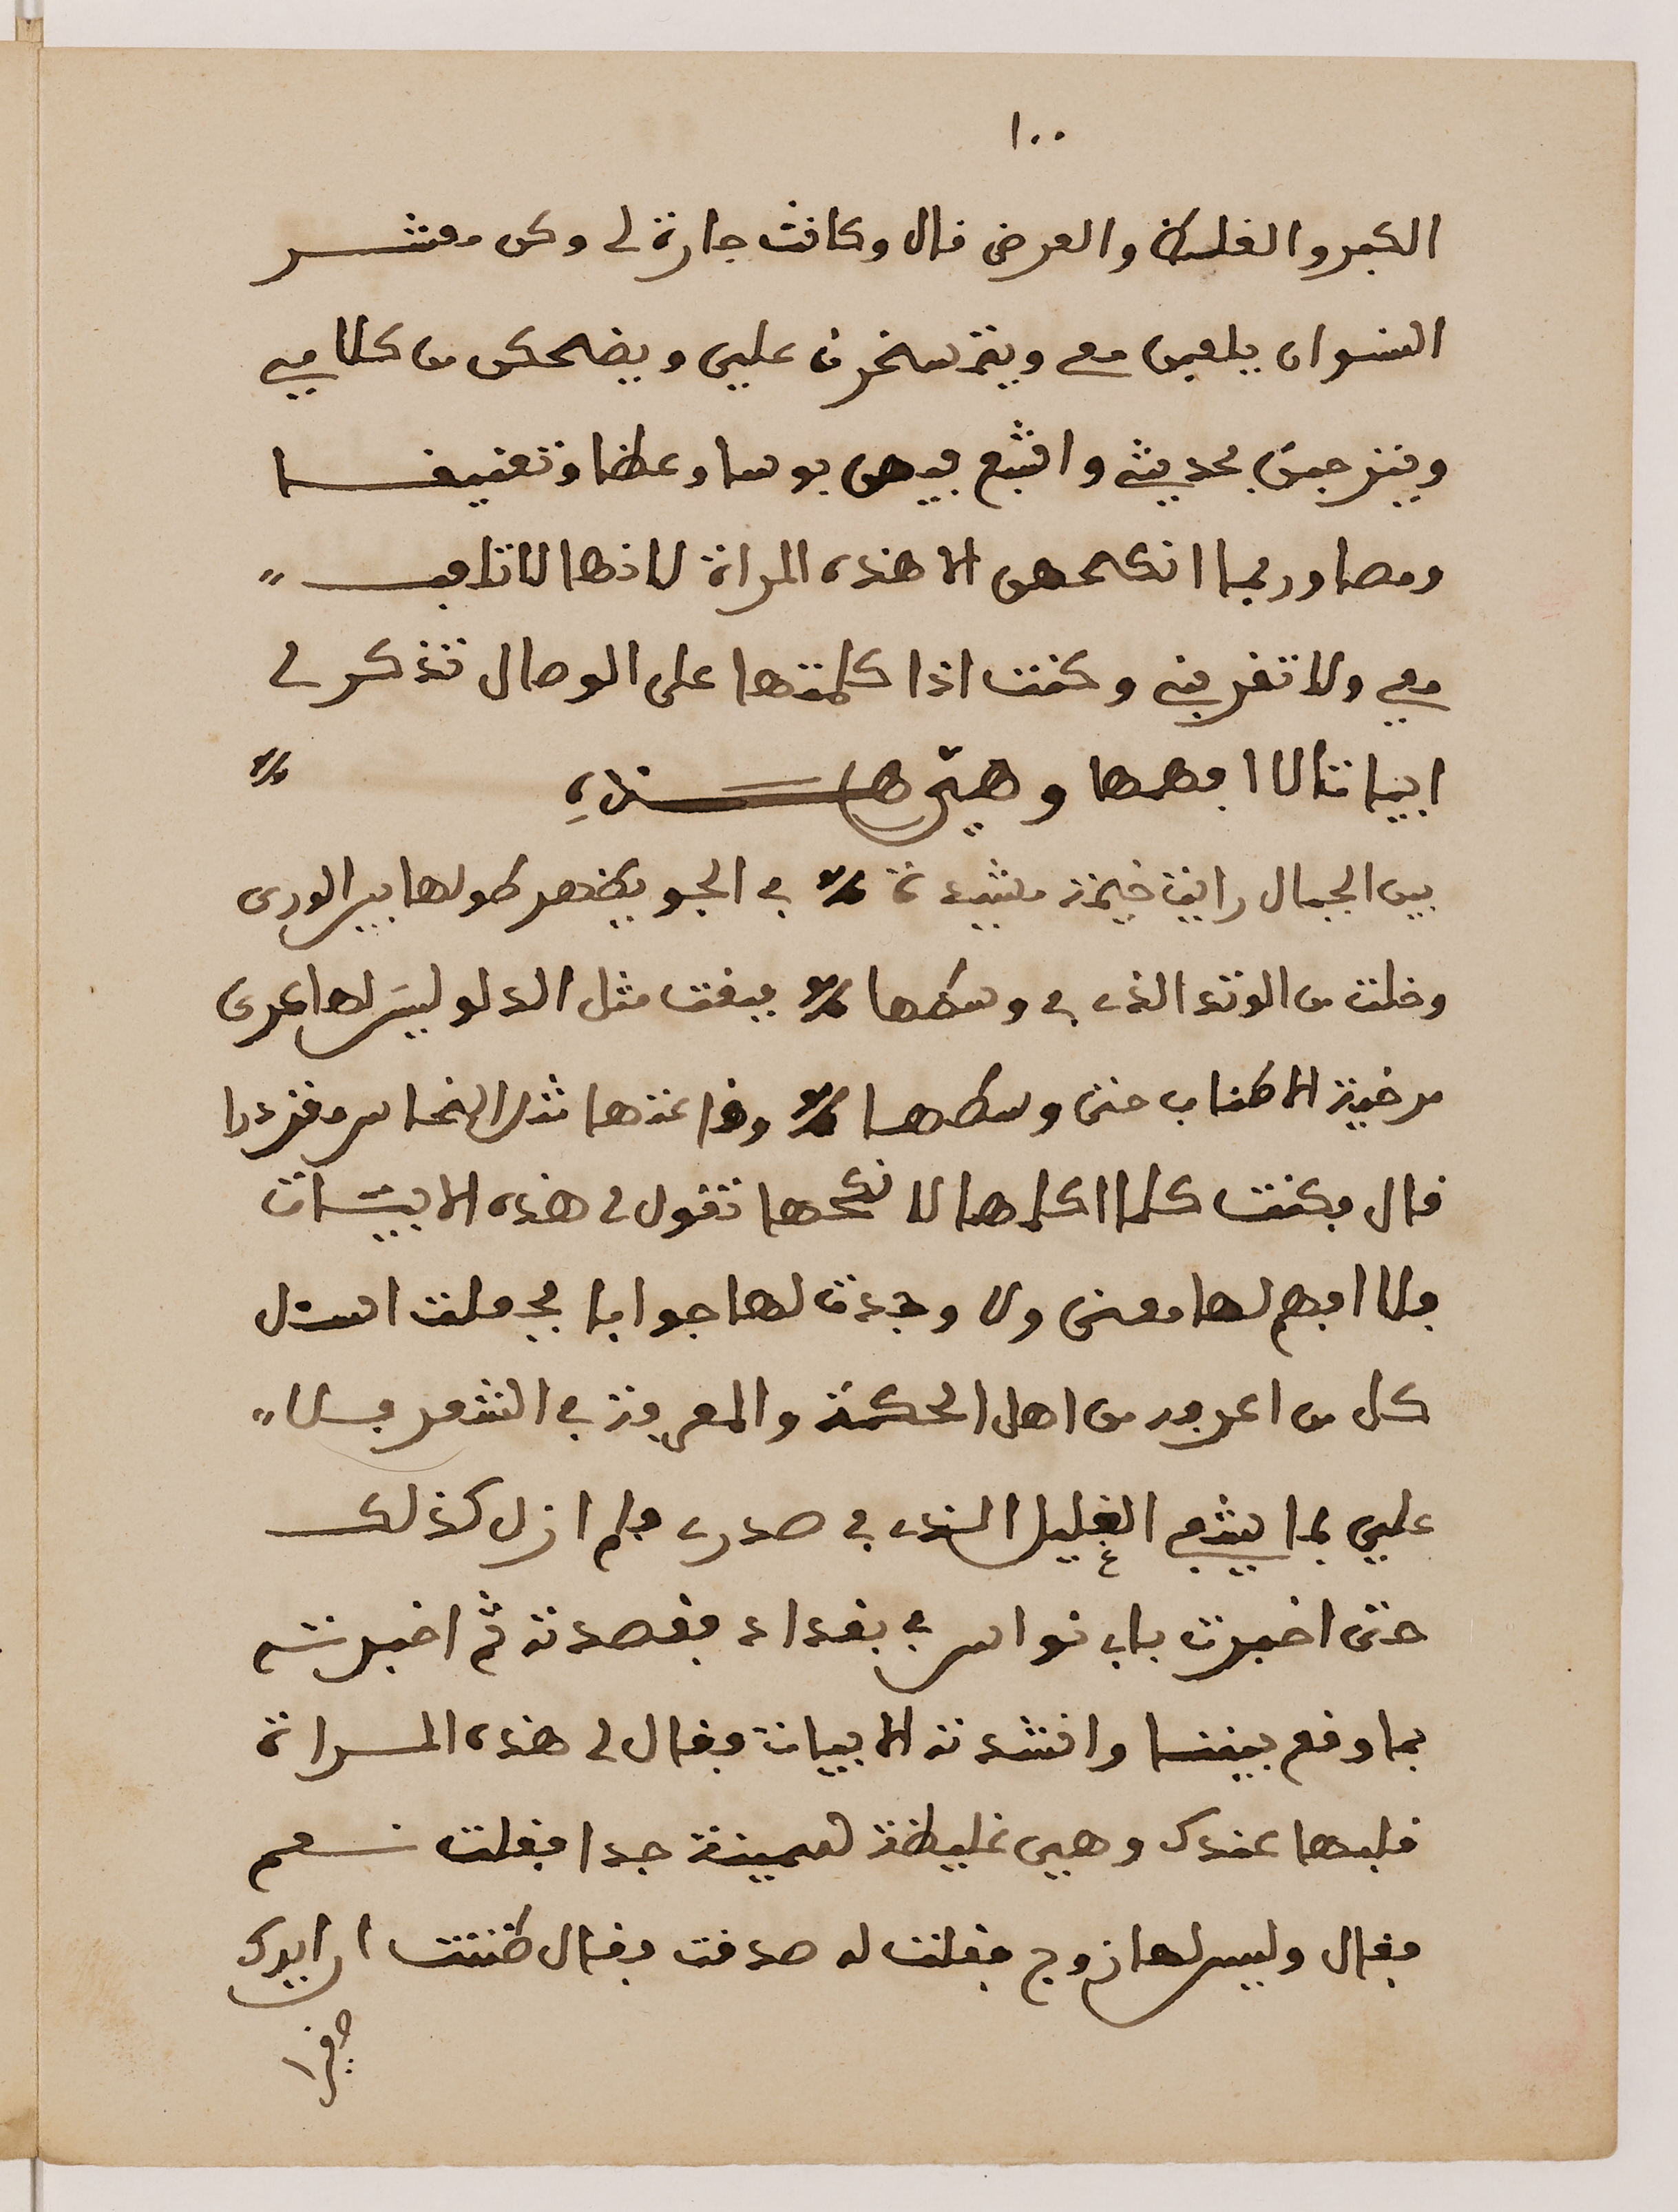 ١٠٠
الكبر والغلظ والعرض فال وكانت جارة لي وكن معشر
النسوان يلعبن معي ويتمسخرن علي ويضحكن من كلامي
ويتعجبن بحديثي واشبع فيهن بوسا وعظا وتعنيفا
ومصا وربما انكحهن الا هذه المراة لانها لا تلعب
معي ولا تقربني وكنت اذا كلمتها على الوصال تذكر لي
ابياتا لا افهمها وهي هذه
بين الجبال رايت خيمة مشيدة في الجو يظهر طولها بين الورى
وخلت من الوتد الذي في وسطها فبقت مثل الدلو ليس لها عرى
مرخية الاطناب حتى وسطها وقاعتها مثل النحاس مقزدرا
فال فكنت كلما اكلمها لانكحها تقول لي هذه الابيات
فلا افهم لها معنى ولا وجدت لها جوابا فجعلت اسئل
كل من اعرفه من اهل الحكمة والمعرفة في الشعر فلا
علي بما يشفي الغليل الذي في صدري فلم ازل كذلك
حتى اخبرت باب نواس في بغداد فقصدته ثم اخبرته
بما وقع بيننا وانشدته الابيات فقال لي هذه المراة
قلبها عندك وهي غليظة سمينة جدا فقلت نعم
فقال وليس لها زوج فقلت له صدقت فقال ظننت ان ايرك
صغيرا